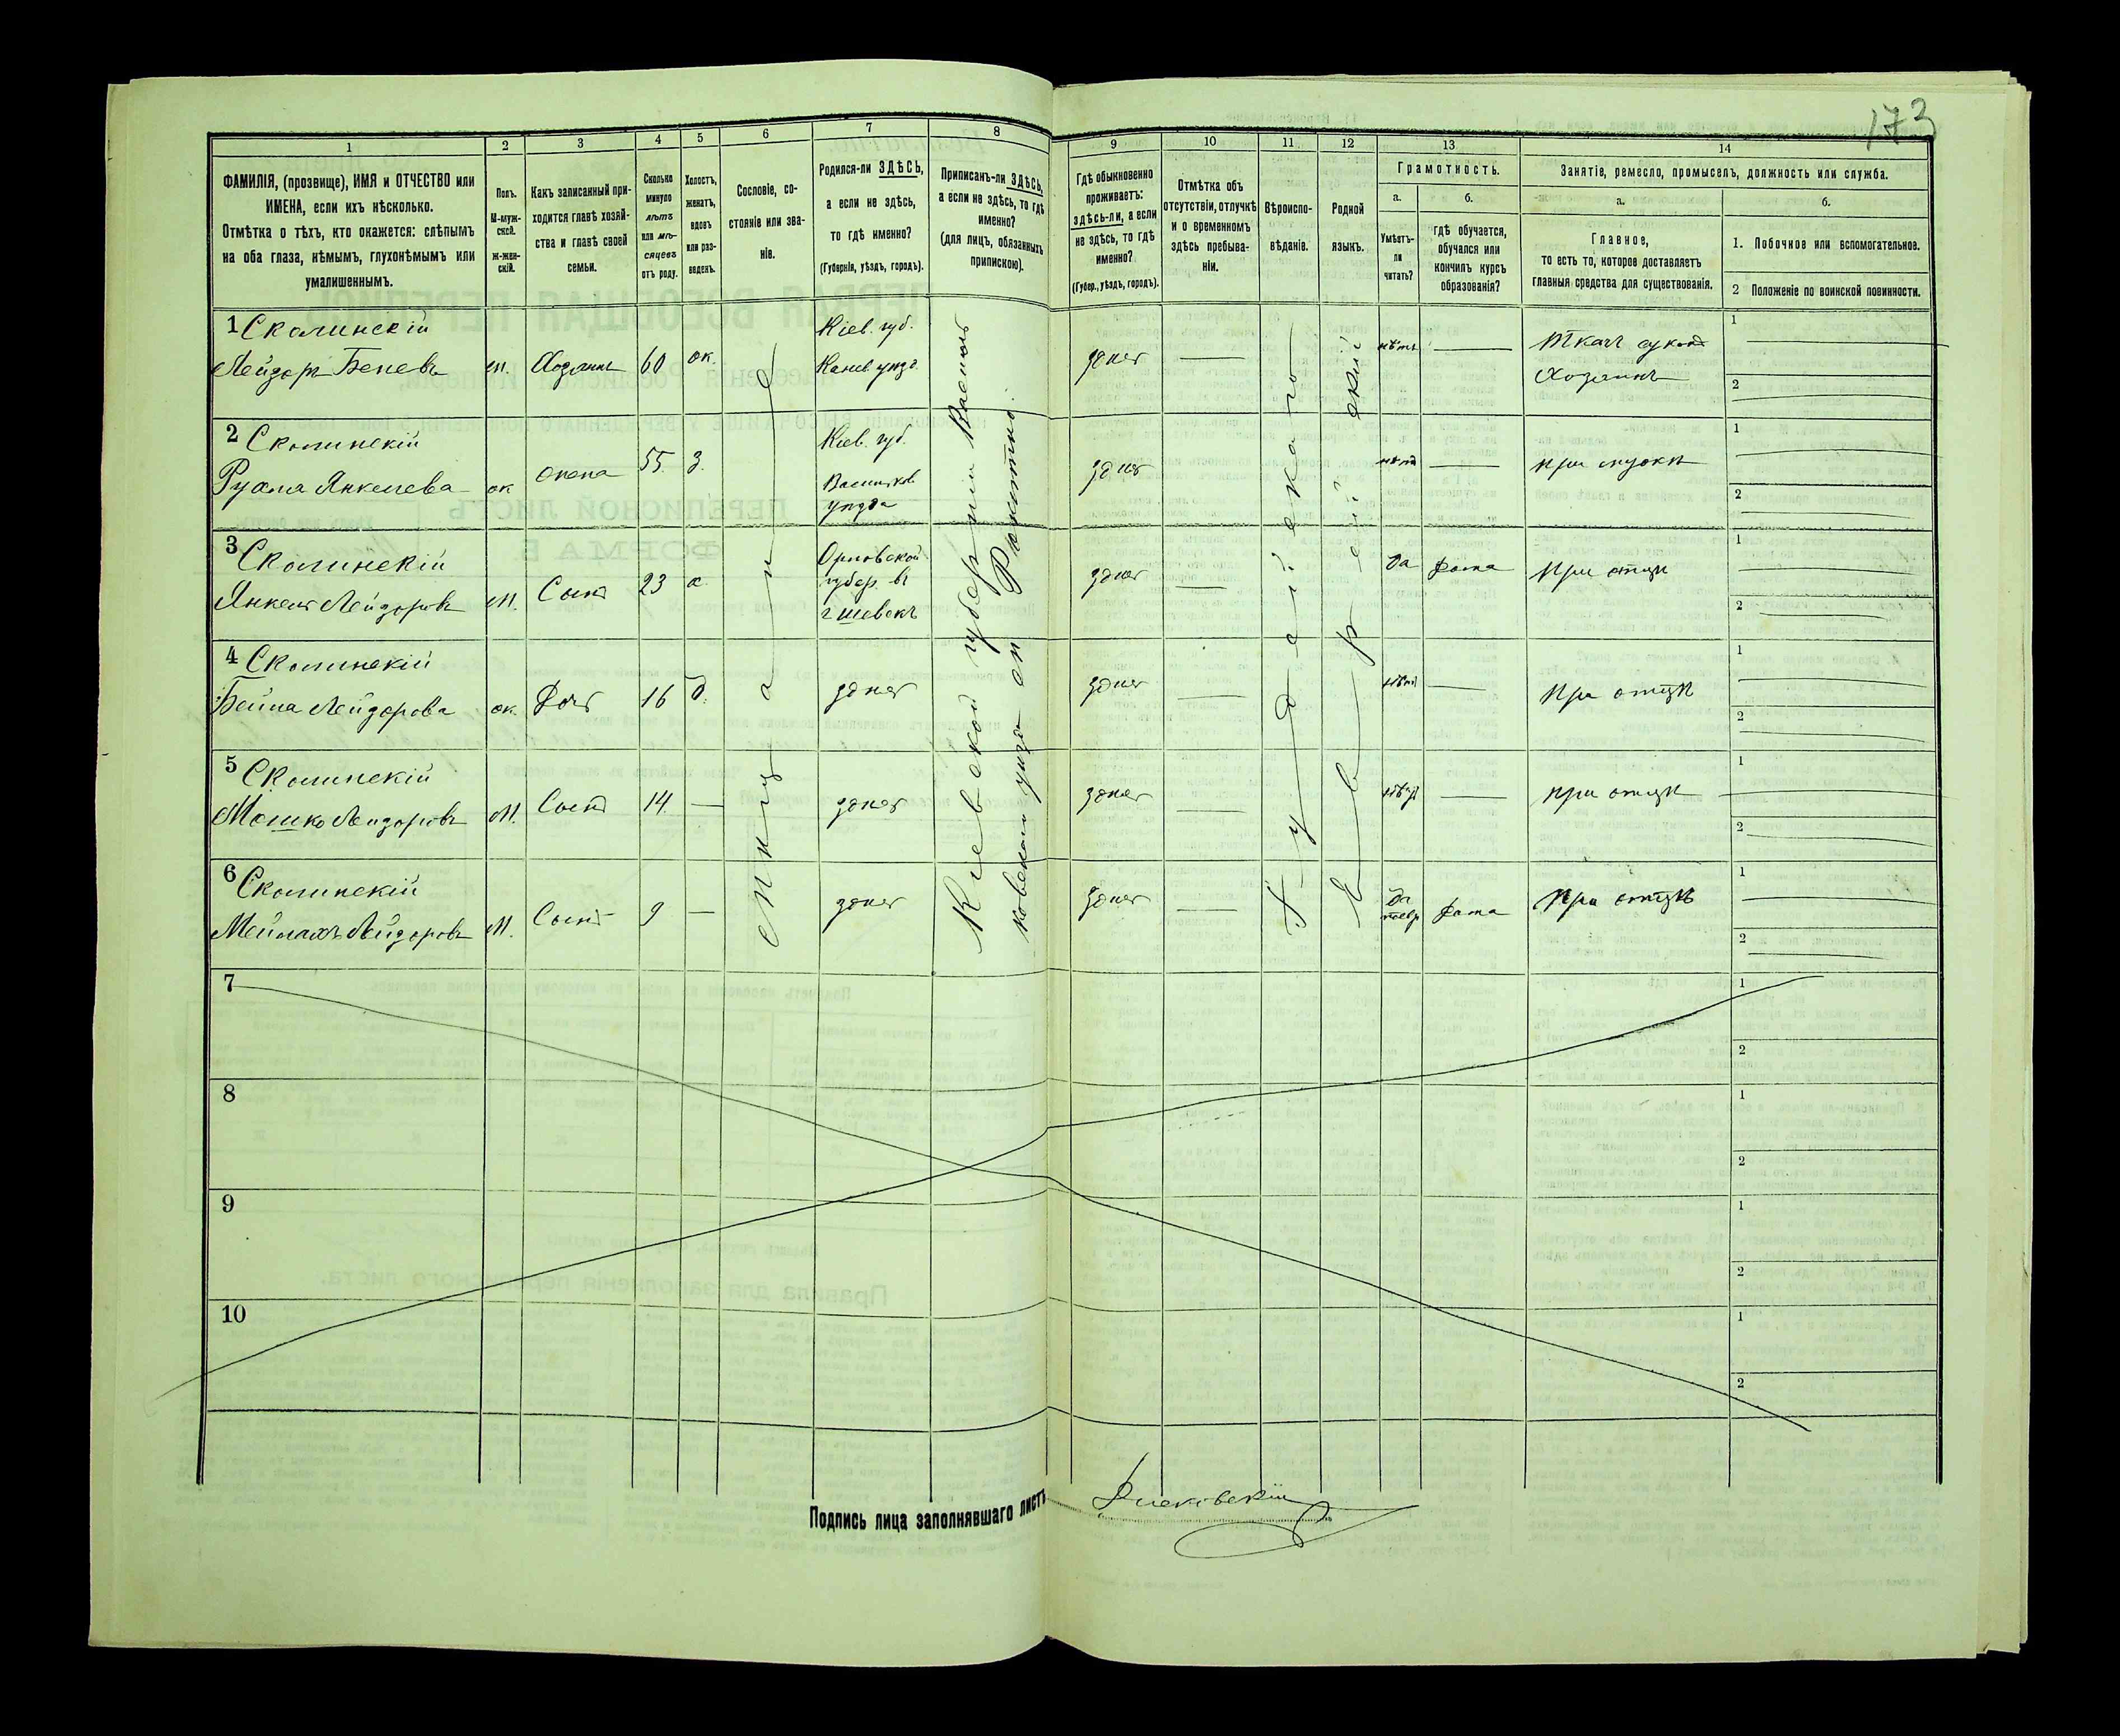 173
1
2
3
4
5
6
7
8
9
10
11
12
13
14
ФАМИЛІЯ, (прозвище), ИМЯ и ОТЧЕСТВО или
ИМЕНА, если ихъ нѣсколько.
Отмѣтка о тѣхъ, кто окажется: слѣпымъ
на оба глаза, нѣмымъ, глухонѣмымъ или
умалишеннымъ.
Полъ.
М-муж-
ской.
Ж-жен-
скій.
Какъ записанный при-
ходится главѣ хозяй-
ства и главѣ своей
семьи.
Сколько
минуло
лѣтъ
или мѣ-
сяцевъ
отъ роду.
Холостъ,
женатъ,
вдовъ
или раз-
веденъ.
Сословіе, со-
стояніе или зва-
ніе.
Родился-ли ЗДѢСЬ,
а если не здѣсь,
то гдѣ именно?
(Губернія, уѣздъ, городъ).
Приписанъ-ли ЗДѢСЬ,
а если не здѣсь, то гдѣ
именно?
(для лицъ, обязанныхъ
припискою).
Гдѣ обыкновенно
проживаетъ:
здѣсь-ли, а если
не здѣсь, то гдѣ
именно?
(Губер., уѣздъ, городъ).
Отмѣтка объ
отсутствіи, отлучкѣ
и о временномъ
здѣсь пребыва-
ніи.
Вѣроиспо-
вѣданіе.
Родной
языкъ.
Грамотность.
а.
Умѣетъ-
ли
читать?
б.
гдѣ обучается,
обучался или
кончилъ курсъ
образованія?
Занятіе, ремесло, промыселъ, должность или служба.
а.
Главное,
то есть то, которое доставляетъ
главныя средства для существованія.
б.
1. Побочное или вспомогательное.
2 Положеніе по воинской повинности.
1 Сколинскій
Лейзоръ Беневъ
м.
Хозяинъ
60
ж.
Кіев. губ.
Канев. уѣзд.
здѣсь
нѣтъ
Ткачъ сукон
Хозяинъ
1
2
2 Сколинскій
Рухля Янкелева
ж
жена
55.
З.
Кіев. губ.
Васильков
уѣзда
здѣсь
нѣтъ
при мужѣ
1
2
3 Сколинскій
Янкель Лейзоровъ
м.
Сынъ
23
х
Орловской
губер. въ
здѣсь
да
дома
при отцѣ
1
2
4 Сколинскій
Бейла Лейзорова
ж.
Дочь
16
д.
здѣсь
здѣсь
нѣтъ
при отцѣ
1
2
5 Сколинскій
Мошко Лейзоровъ
М.
Сынъ
14.
здѣсь
здѣсь
нѣтъ
при отцѣ
1
2
6 Сколинскій
Мейлахъ Лейзоровъ
М.
Сынъ
9
здѣсь
здѣсь
да
дома
При отцѣ
1
2
мѣщане
Кіевской губерніи Василь
ковскаго уѣзда м. Ракитно.
Іудейскаго
Еврейскій
7
1
2
8
1
2
9
1
2
10
1
2
Подпись лица заполнявшаго листъ